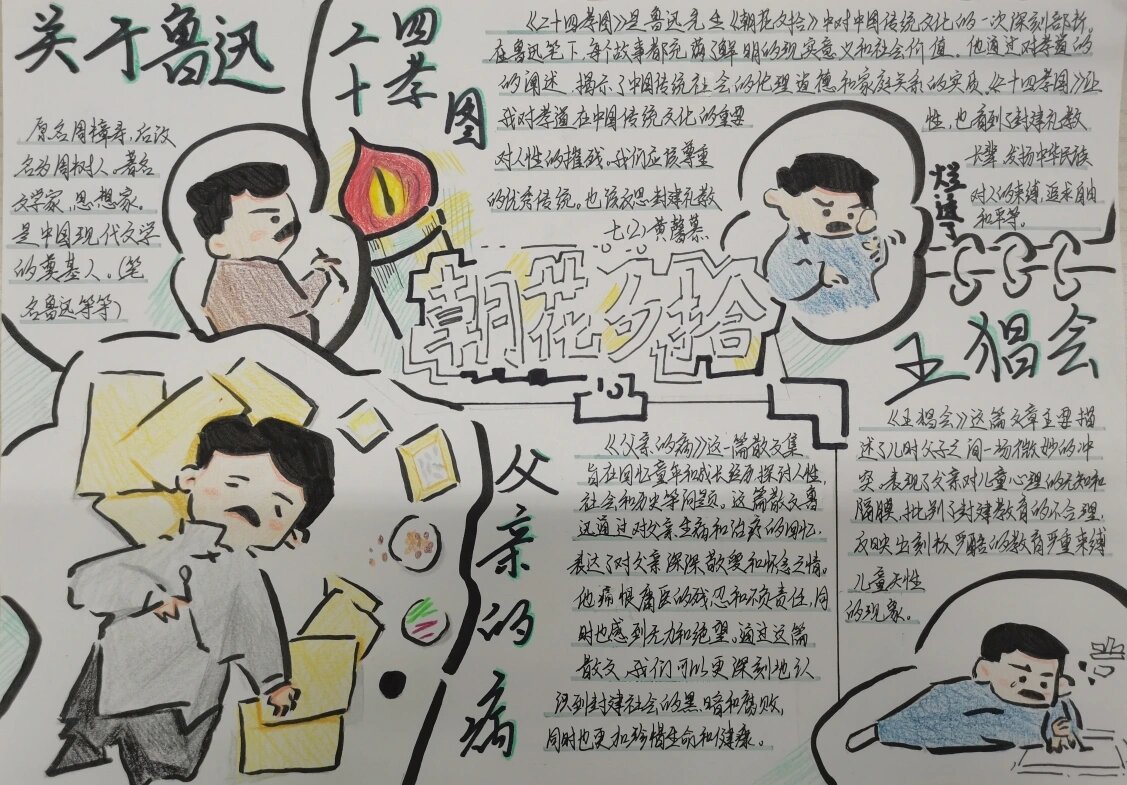 关于鲁迅
原名周樟寿,后改
名为周树人。著名
文学家,思想家。
是中国现代文学
的奠基人。(笔
名鲁迅等等)
二十四孝图
《二十四孝图》是鲁迅先生《朝花夕拾》中对中国传统文化的一次深刻剖析。
在鲁迅笔下,每个故事都充满了鲜明的现实意义和社会价值。他通过对孝道的
的阐述,揭示了中国传统社会的伦理道德和家庭关系的实质,《二十四孝图》让
我对孝道在中国传统文化的重要
性,也看到了封建礼教
对人性的摧残,我们应该尊重
长辈,发扬中华民族
的优秀传统。也该反思封建礼教
对人的束缚,追求自由
和平等。
七(2)黄馨慕
烂透了
朝花夕拾
王猖会
《王猖会》这篇文章主要描
述了儿时父子之间一场微妙的冲
突,表现了父亲对儿童心理的无知和
隔膜,批判了封建教育的不合理,
反映出刻板严酷的教育严重束缚
儿童天性
的现象。
父亲的病
《父亲的病》这一篇散文集
旨在回忆童年和成长经历探讨人性,
社会和历史等问题。这篇散文鲁
迅通过对父亲生病和治疗的回忆,
表达了对父亲深深敬爱和怀念之情。
他痛恨庸医的残忍和不负责任,同
时也感到无力和绝望。通过这篇
散文,我们可以更深刻地认
识到封建社会的黑暗和腐败,
同时也更加珍惜生命和健康。